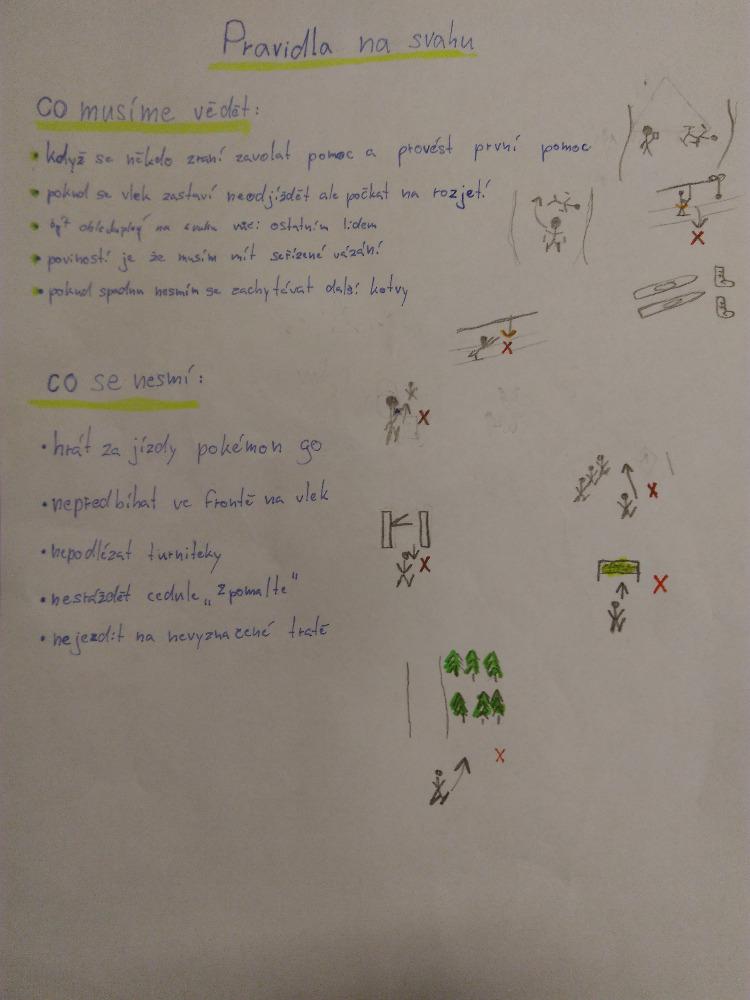 Pravidla na svahu
CO musíme vědět:
• když se někdo zraní zavolat pomoc a provést první pomoc
• pokud se vlek zastaví neodjíždět ale počkat na rozjetí
• být ohleduplný na svahu vůči ostatním lidem
• poviností je že musím mít seřízené vázání
• pokud spadnu nesmím se zachytávat další kotvy
CO se nesmí:
• hrát za jízdy pokémon go
• nepředbíhat ve frontě na vlek
• nepodlézat turnikety
• nesráždět cedule „Zpomalte"
• nejezdit na nevyznačené tratě